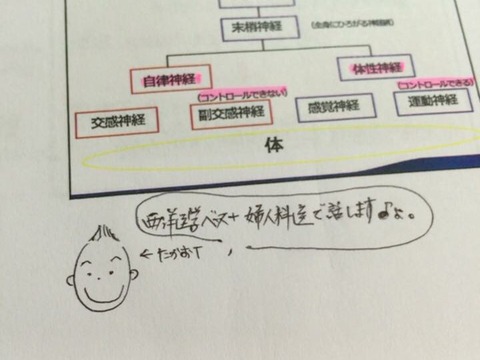 末梢神経
自律神経
体性神経
(コントロールできない)
(コントロールできる)
交感神経
副交感神経
感覚神経
運動神経
体
西洋医学ベース+婦人科医で話しますよ。
←たかおT